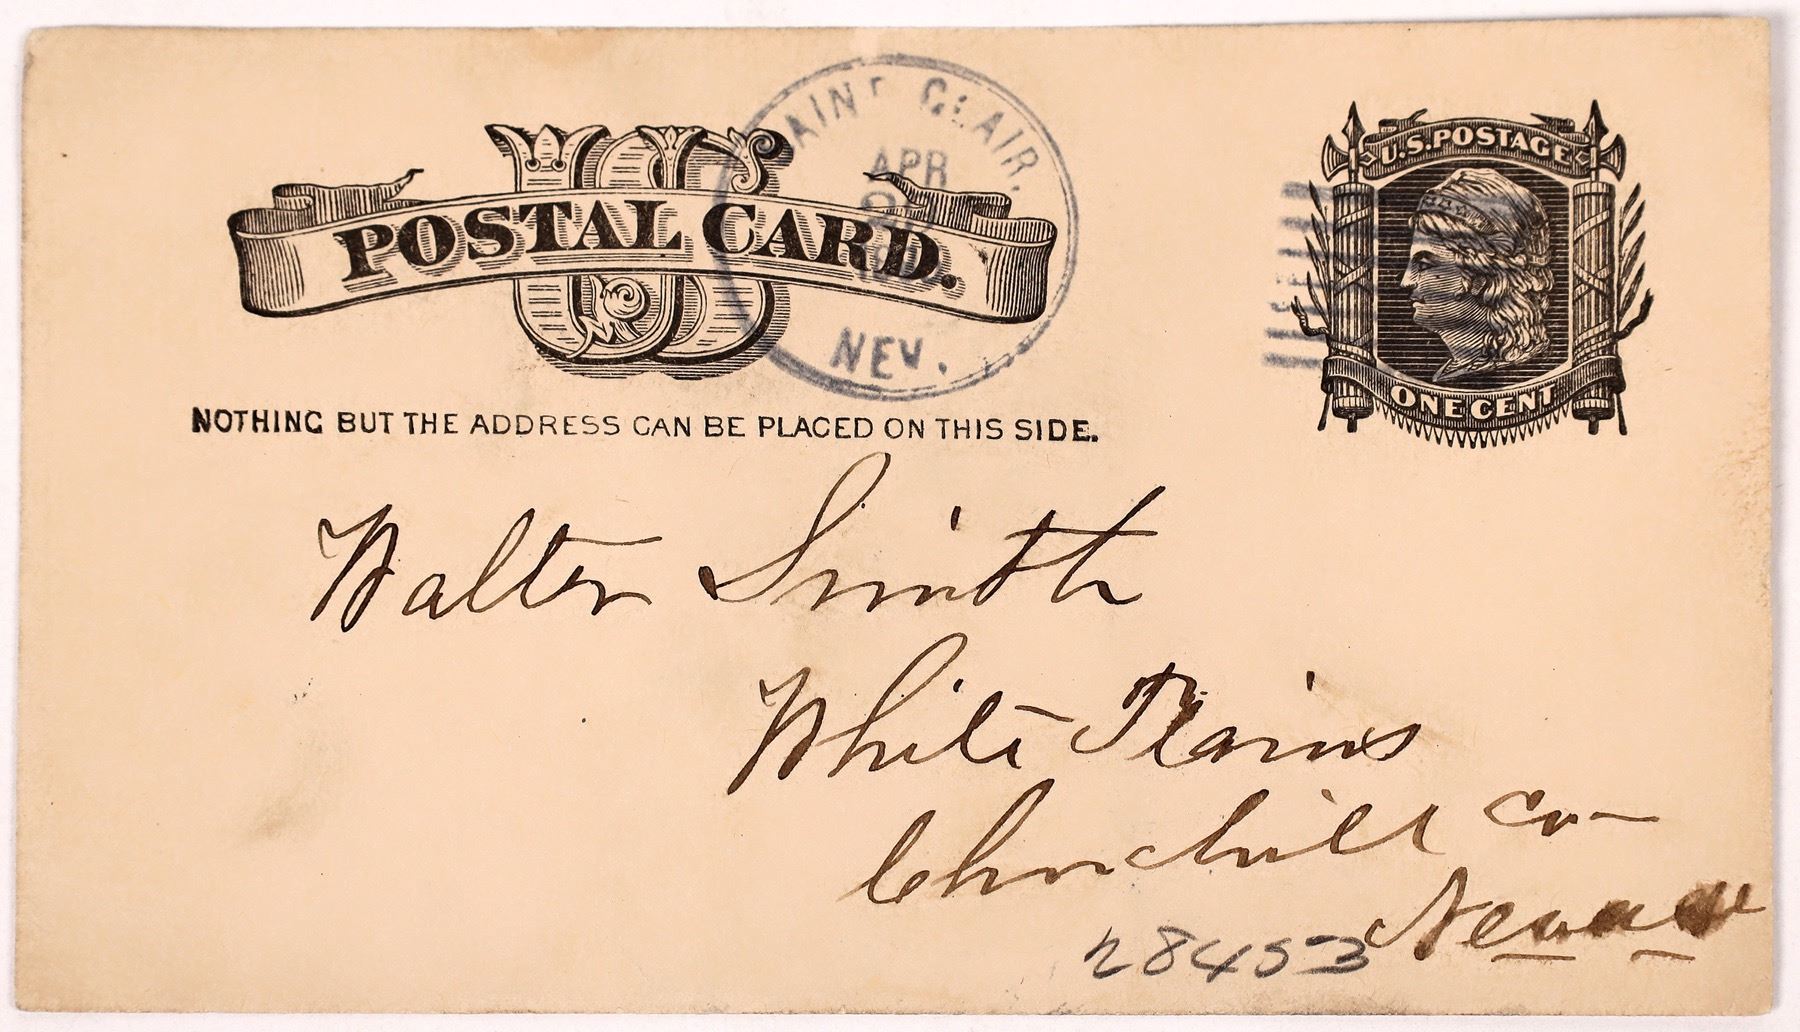 US
POSTAL CARD.
SAINT CLAIR.
APR
NEV.
U.S. POSTAGE
ONE CENT
NOTHING BUT THE ADDRESS CAN BE PLACED ON THIS SIDE.
Walter Smith
White Plains
Churchill Co
Nevada
28453